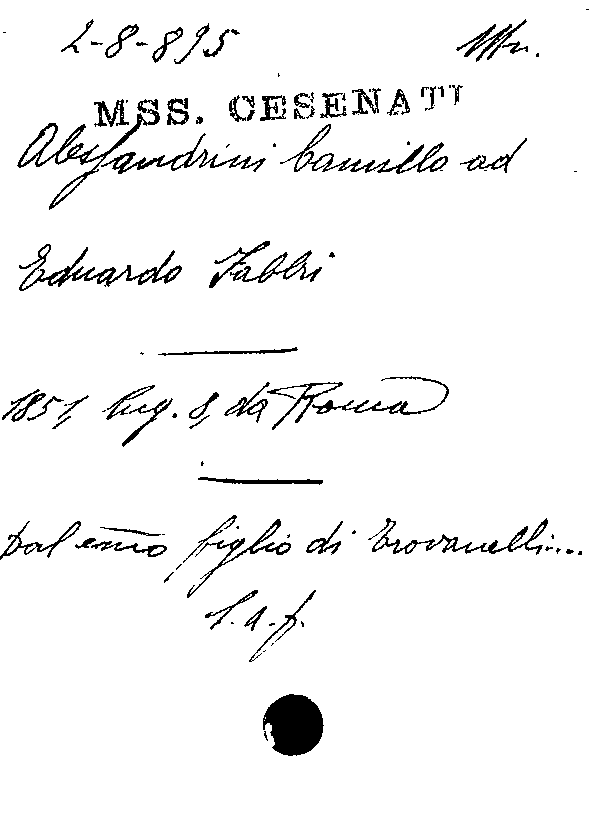 2-8-895 Mn.
MSS. CESENATI
Alessandrini Camillo ad
Eduardo Fabbri
1851, Lug. 8, da Roma
Dal figlio di Trovanelli...
L. a. f.